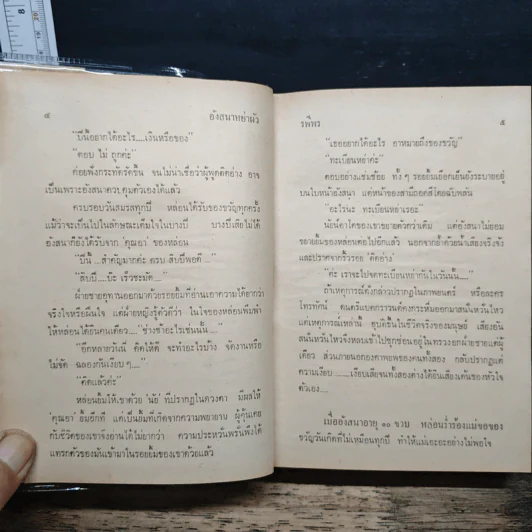 ๔ อังสนาหย่าผัว
"ปีนี้อยากได้อะไร.....เงินหรือของ"
"ตอบ ไม่ ถูกค่ะ"
ค่อยพึงกระทัดรัดขึ้น จนไม่น่าเชื่อว่าผู้พูดคิดอย่าง อาจ
เป็นเพราะอังสนาควบคุมตัวเองได้แล้ว
ครบรอบวันสมรสทุกปี หล่อนได้รับของขวัญทุกครั้ง
แม้ว่าจะเป็นไปในลักษณะเต็มใจในบางปี บางปีเสียไม่ได้
อังสนาก็ยังได้รับจาก คุณอา ของหล่อน
"ปีนี้.....สำคัญมากค่ะ ครบ สิบปีพอดี....."
"สิบปี.....บ๊ะ เร็วชะมัด....."
ฝ่ายชายอุทานออกมาด้วยรอยยิ้มที่อ่านเอาความได้ยากว่า
จริงใจหรือฝืนใจ แต่ฝ่ายหญิงรู้ดีกว่า ในใจของหล่อนพึมพำ
ให้หล่อนได้ยินคนเดียว....."ช่างช้าอะไรเช่นนั้น....."
"อีกหลายวันนี่ คิดให้ดี จะทำอะไรบ้าง จัดงานหรือ
ไม่จัด ฉลองกันเงียบ ๆ....."
"คิดแล้วค่ะ"
หล่อนยิ้มให้เขาด้วย นัย ที่ปรากฏในดวงตา มีผลให้
'คุณอา' ยิ้มยีกที แต่เป็นยิ้มที่เกิดจากความพยายาม ผู้คุ้นเคย
กับชีวิตของเขาจึงอ่านได้ไม่ยากว่า ความประหวั่นพรั่นพึงได้
แทรกตัวของมันเข้ามาในรอยยิ้มของเขาด้วยแล้ว
รพีพร ๕
"เธออยากได้อะไร อาหมายถึงของขวัญ"
"ทะเบียนหย่าค่ะ"
ตอบอย่างแช่มช้อย ทั้ง ๆ รอยยิ้มเยือกเย็นยังระบายอยู่
บนใบหน้าอังสนา แต่หน้าของสามีถอดสีโดยฉับพลัน
"อะไรนะ ทะเบียนหย่าเรอะ"
นัยน์ตาโตของเขาขยายกว้างกว่าเดิม แต่อังสนาไม่ยอม
ขยายยิ้มของหล่อนต่อไปอีกแล้ว นอกจากย้ำด้วยน้ำเสียงจริงจัง
และปราศจากริ้วรอย คิดอย่าง
"ค่ะ เราจะไปจดทะเบียนหย่ากันในวันนั้น....."
ถ้าเหตุการณ์ดังกล่าวปรากฏในภาพยนตร์ หรือละคร
โทรทัศน์ ดนตรีแบคกราวนด์คงกระหึ่มออกมาสนั่นหวั่นไหว
แต่เหตุการณ์เหล่านั้น อุบัติขึ้นในชีวิตจริงของมนุษย์ เสียงอัน
สนั่นหวั่นไหวจึงหลบเข้าไปซุกซ่อนอยู่ในทรวงอกฝ่ายชายแต่ผู้
เดียว ส่วนภายนอกองคาพยพของคนทั้งสอง กลับปรากฏแต่
ความเงียบ.........เงียบเสียจนทั้งสองต่างได้ยินเสียงเต้นของหัวใจ
ตัวเอง.....
เมื่ออังสนาอายุ ๑๐ ขวบ หล่อนร่ำร้องแม่ขอของ
ขวัญวันเกิดที่ไม่เหมือนทุกปี ทำให้แม่เอะอะอย่างไม่พอใจ